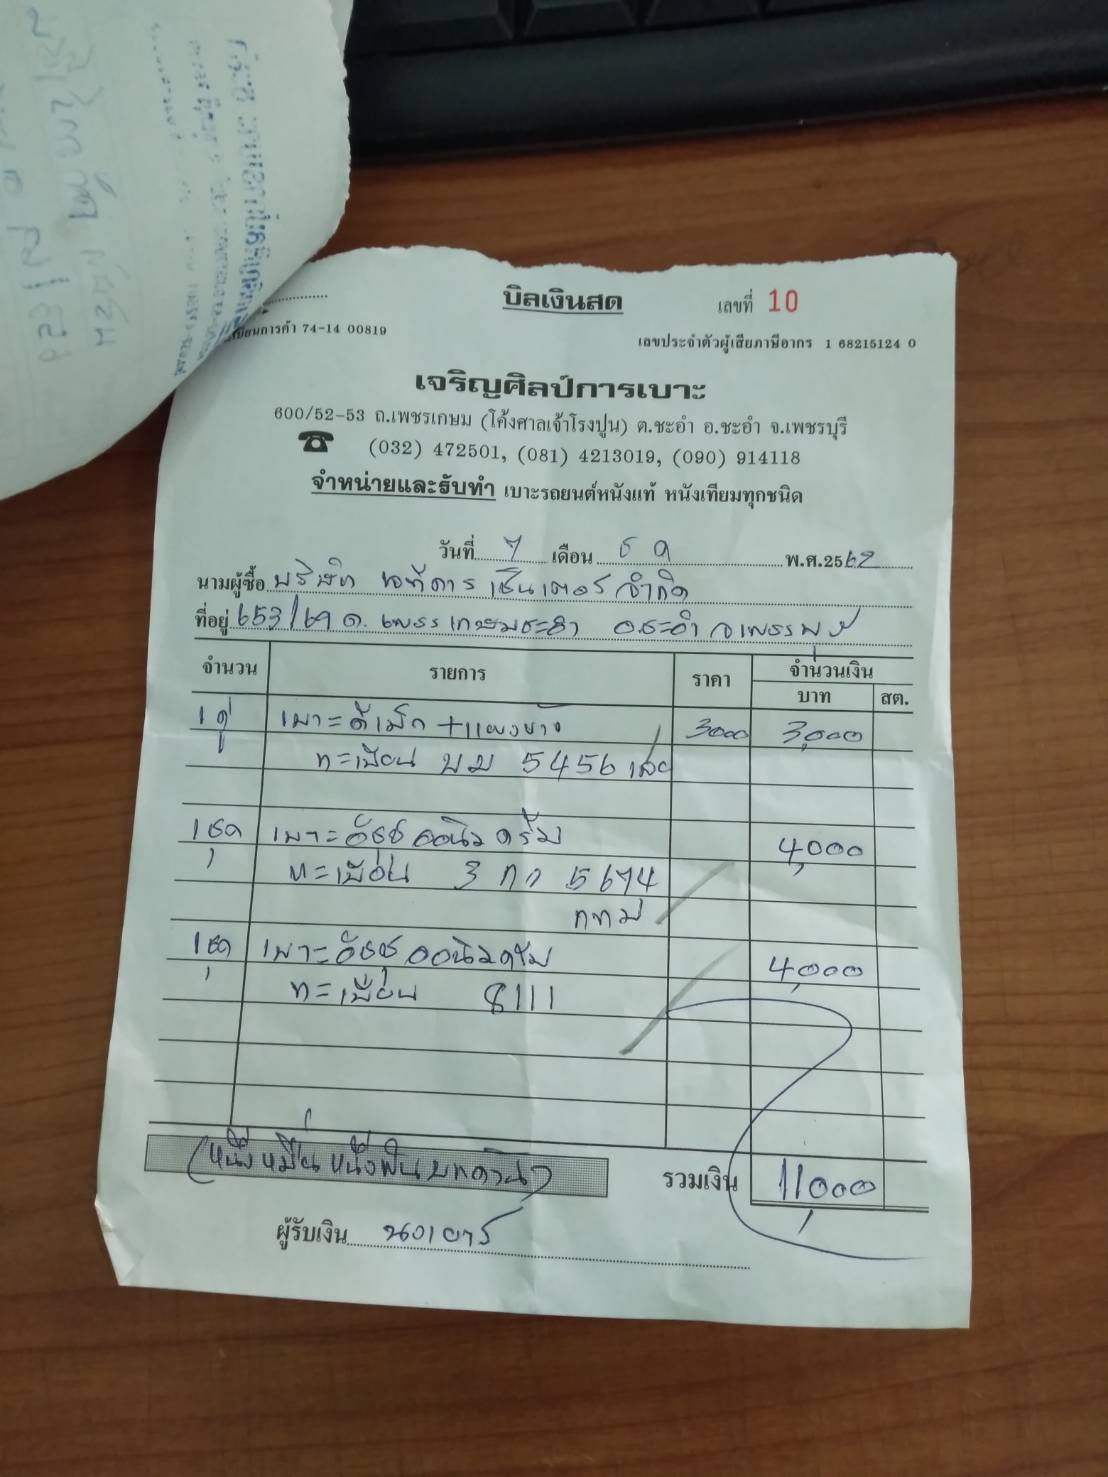 บิลเงินสด
เลขที่ 10
ทะเบียนการค้า 74-14 00819
เลขประจำตัวผู้เสียภาษีอากร 1 68215124 0
เจริญศิลป์การเบาะ
600/52-53 ถ.เพชรเกษม (โค้งศาลเจ้าโรงปูน) ต.ชะอำ อ.ชะอำ จ.เพชรบุรี
☎ (032) 472501, (081) 4213019, (090) 914118
จำหน่ายและรับทำ เบาะรถยนต์หนังแท้ หนังเทียมทุกชนิด
วันที่ 7 เดือน ธค พ.ศ.2562
นามผู้ซื้อ บริษัท เซ็นเตอร์ จำกัด
ที่อยู่ 653/ ถ. เพชรเกษม ชะอำ อ.ชะอำ จ.เพชรบุรี
จำนวน รายการ ราคา จำนวนเงิน
บาท สต.
1 คู่ เบาะดีแม็ก +แผงข้าง 3000 3,000
ทะเบียน บม 5456 เลย
1 ชุด เบาะอีซูซุ 4,000
ทะเบียน 3 กก 5674
กทม
1 ชุด เบาะอีซูซุ 4,000
ทะเบียน 8111
(หนึ่งหมื่นหนึ่งพันบาทถ้วน) รวมเงิน 11,000
ผู้รับเงิน